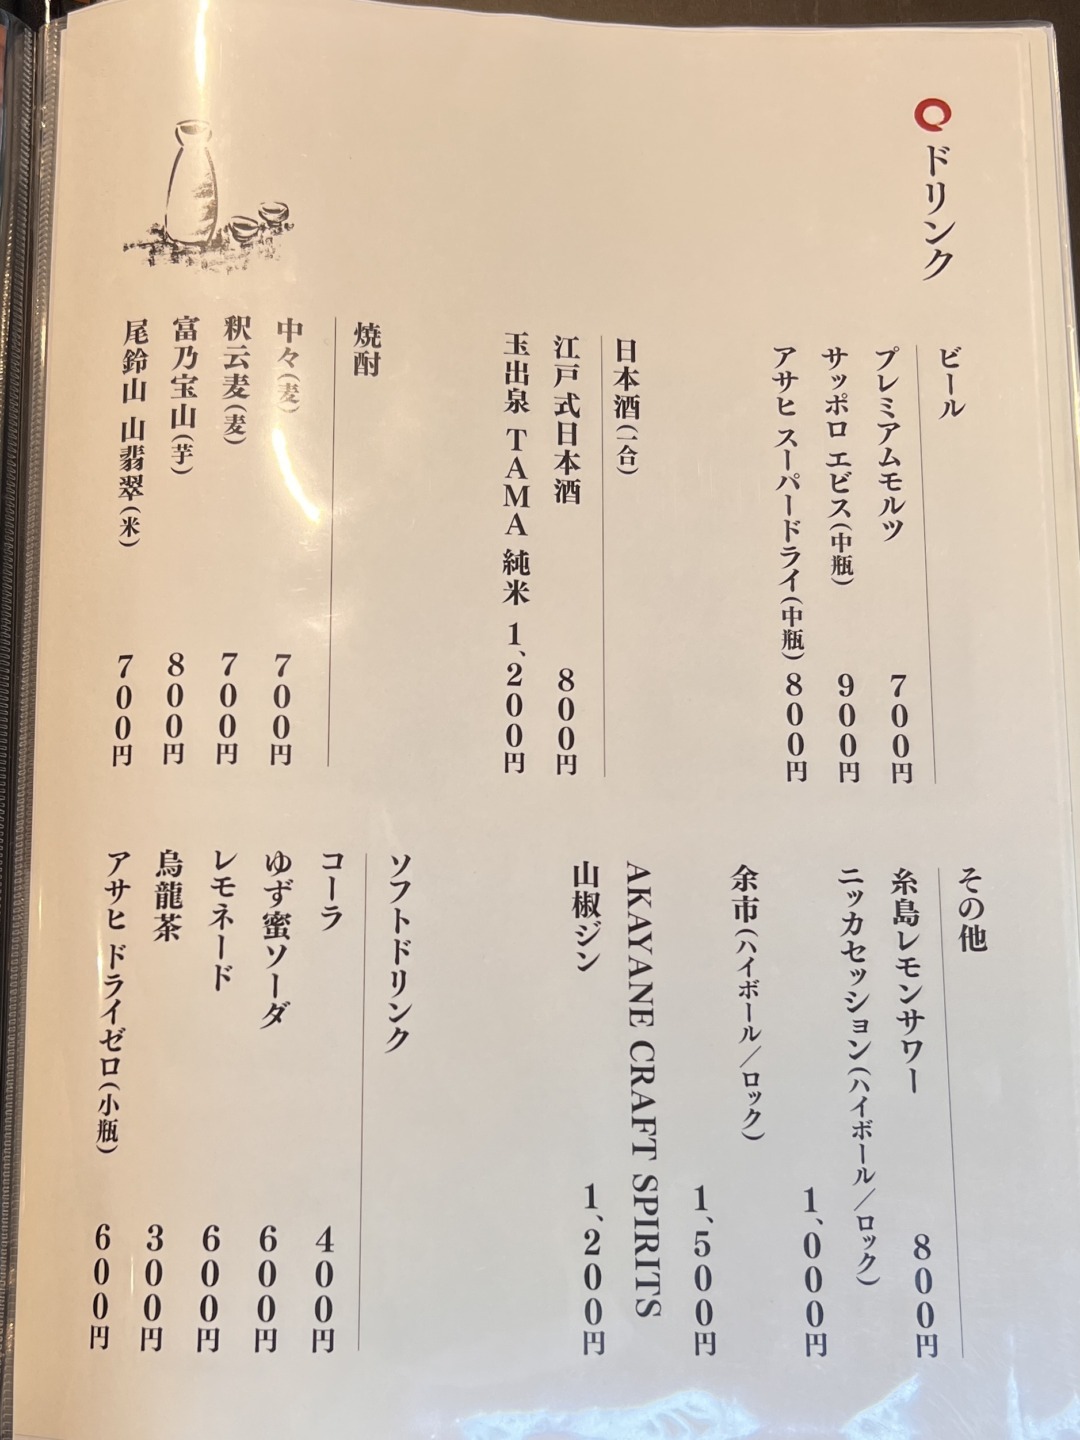 ドリンク
ビール
プレミアムモルツ 700円
サッポロ エビス(中瓶) 900円
アサヒ スーパードライ(中瓶) 800円
日本酒(一合)
江戸式日本酒 800円
玉出泉 TAMA 純米 1,200円
焼酎
中々(麦) 700円
釈云麦(麦) 700円
富乃宝山(芋) 800円
尾鈴山 山翡翠(米) 700円
その他
糸島レモンサワー 800円
ニッカセッション(ハイボール/ロック)
1,000円
余市(ハイボール/ロック)
1,500円
AKAYANE CRAFT SPIRITS
山椒ジン 1,200円
ソフトドリンク
コーラ 400円
ゆず蜜ソーダ 600円
レモネード 600円
烏龍茶 300円
アサヒ ドライゼロ(小瓶) 600円